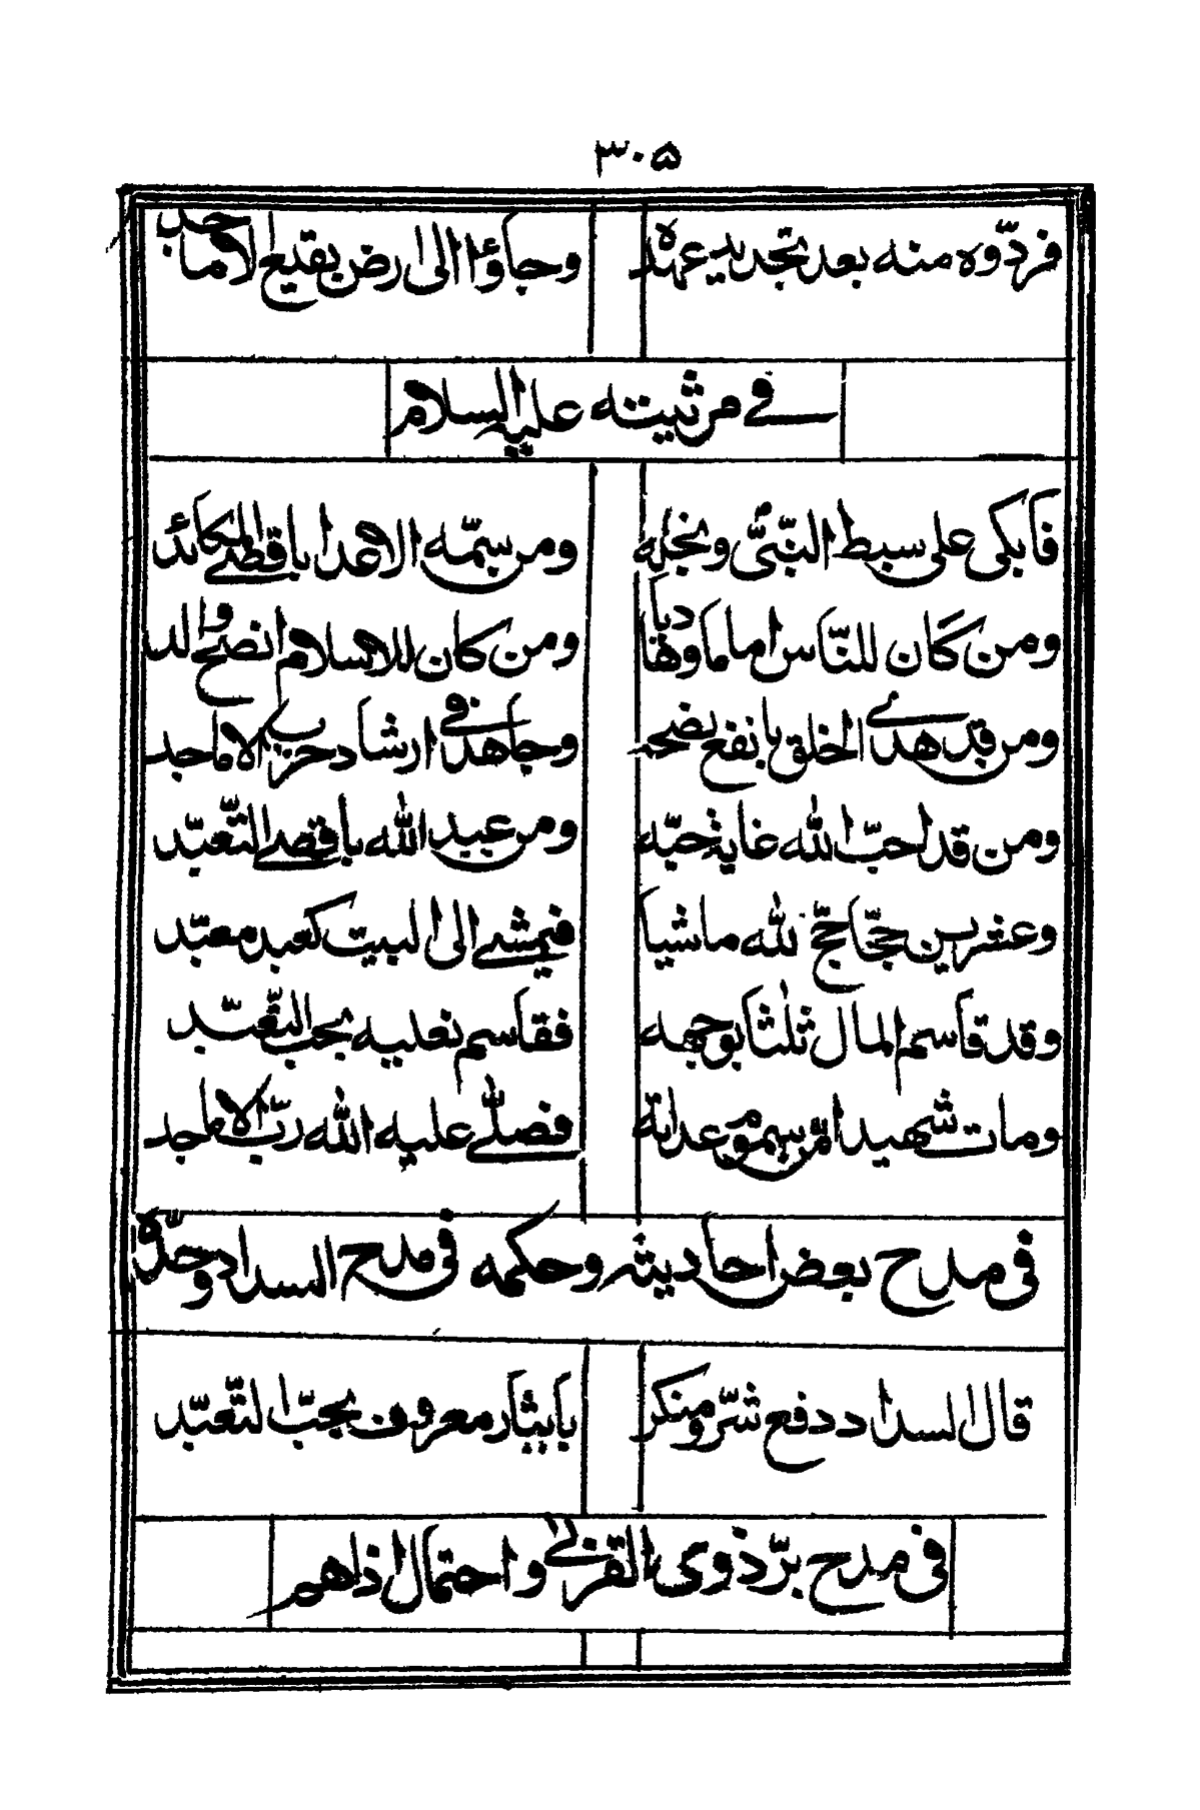 ۳۰۵
فردّوه منه بعد تجدید عهده وجاؤا الی ارض بقیع الاماجد
فی مرثیته علیه السلام
فأبکی علی سبط النبیّ ونجله ومن سمّه الاعدا باقطی المکائد
ومن کان للناس اماما وهادیا ومن کان للاسلام انصح والد
ومن قد هدی الخلق بانفع نصحه وجاهد فی ارشاد حزب الاماجد
ومن قد احبّ الله غایة حبّه ومن عبد الله باقصی التعبّد
وعشرین حجّا حجّ لله ماشیا فیمشی الی البیت کعبد معبّد
وقد قاسم المال ثلثا بوجهه فقاسم نعلیه بحب التعبّد
ومات شهیدا من سموم عداته فصلّی علیه الله ربّ الاماجد
فی مدح بعض احادیثه وحکمه فی مدح السداد وحدّه
قال السداد دفع شرّ ومنکر بایثار معروف بحبّ التعبّد
فی مدح برّ ذوی القربی و احتمال اذاهم